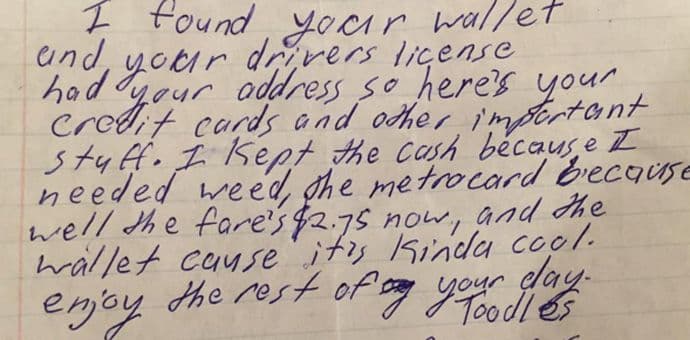 I found your wallet
and your drivers license
had your address so here's your
credit cards and other important
stuff. I kept the cash because I
needed weed, the metrocard because
well the fare's $2.75 now, and the
wallet cause it's kinda cool.
enjoy the rest of your day.
Toodles